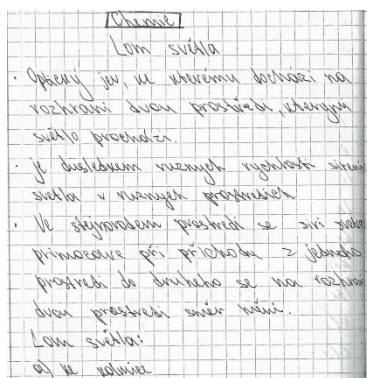 Chemie
Lom světla
· Optický jev, ke kterému dochází na
rozhraní dvou prostředí, kterým
světlo prochází.
· je důsledkem ruznych rychlostí sireni
svetla v ruznych prostredich
· Ve stejnorodem prostredi se siri svetlo
primocare při příchodu z jednoho
prostredi do druheho se na rozhrani
dvou prostredi směr mění.
Lom světla:
a) ke kolmice